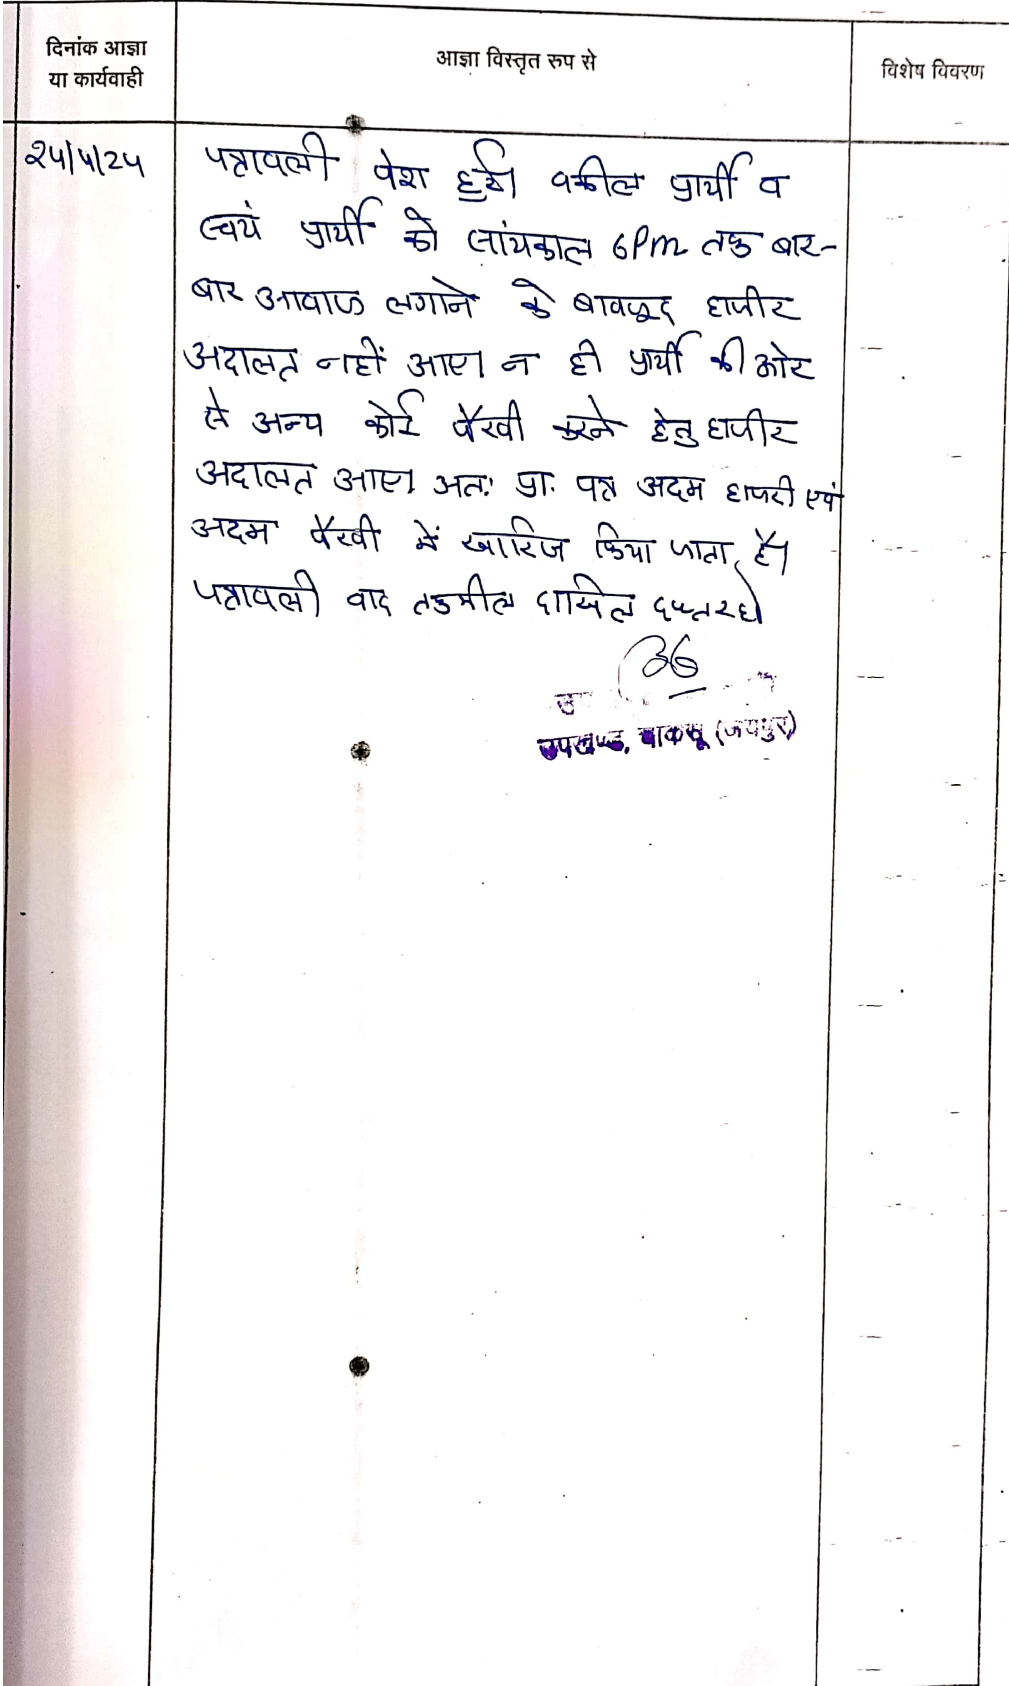 दिनांक आज्ञा
या कार्यवाही
आज्ञा विस्तृत रुप से
विशेष विवरण
पत्रावली पेश हुई। वकील प्रार्थी व
स्वयं प्रार्थी को सांयकाल 6Pm तक बार-
बार आवाज लगाने के बावजूद हाजीर
अदालत नहीं आए। न ही प्रार्थी की ओर
से अन्य कोई पैरवी करने हेतु हाजीर
अदालत आए। अतः प्रा. पत्र अदम हाजरी एवं
अदम पैरवी में खारिज किया जाता है।
पत्रावली वाद तकमील दाखिल दफ्तर हो
उपखण्ड, चाकसू (जयपुर)